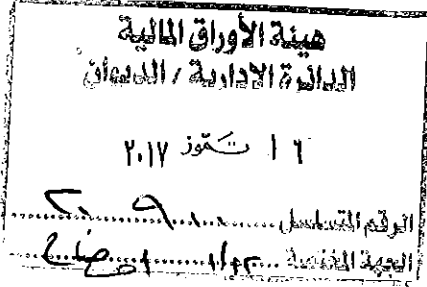 هيئة الأوراق المالية
الدائرة الادارية / الديوان
١٦ تموز ٢٠١٧
الرقم المتسلسل
الجهة المختصة